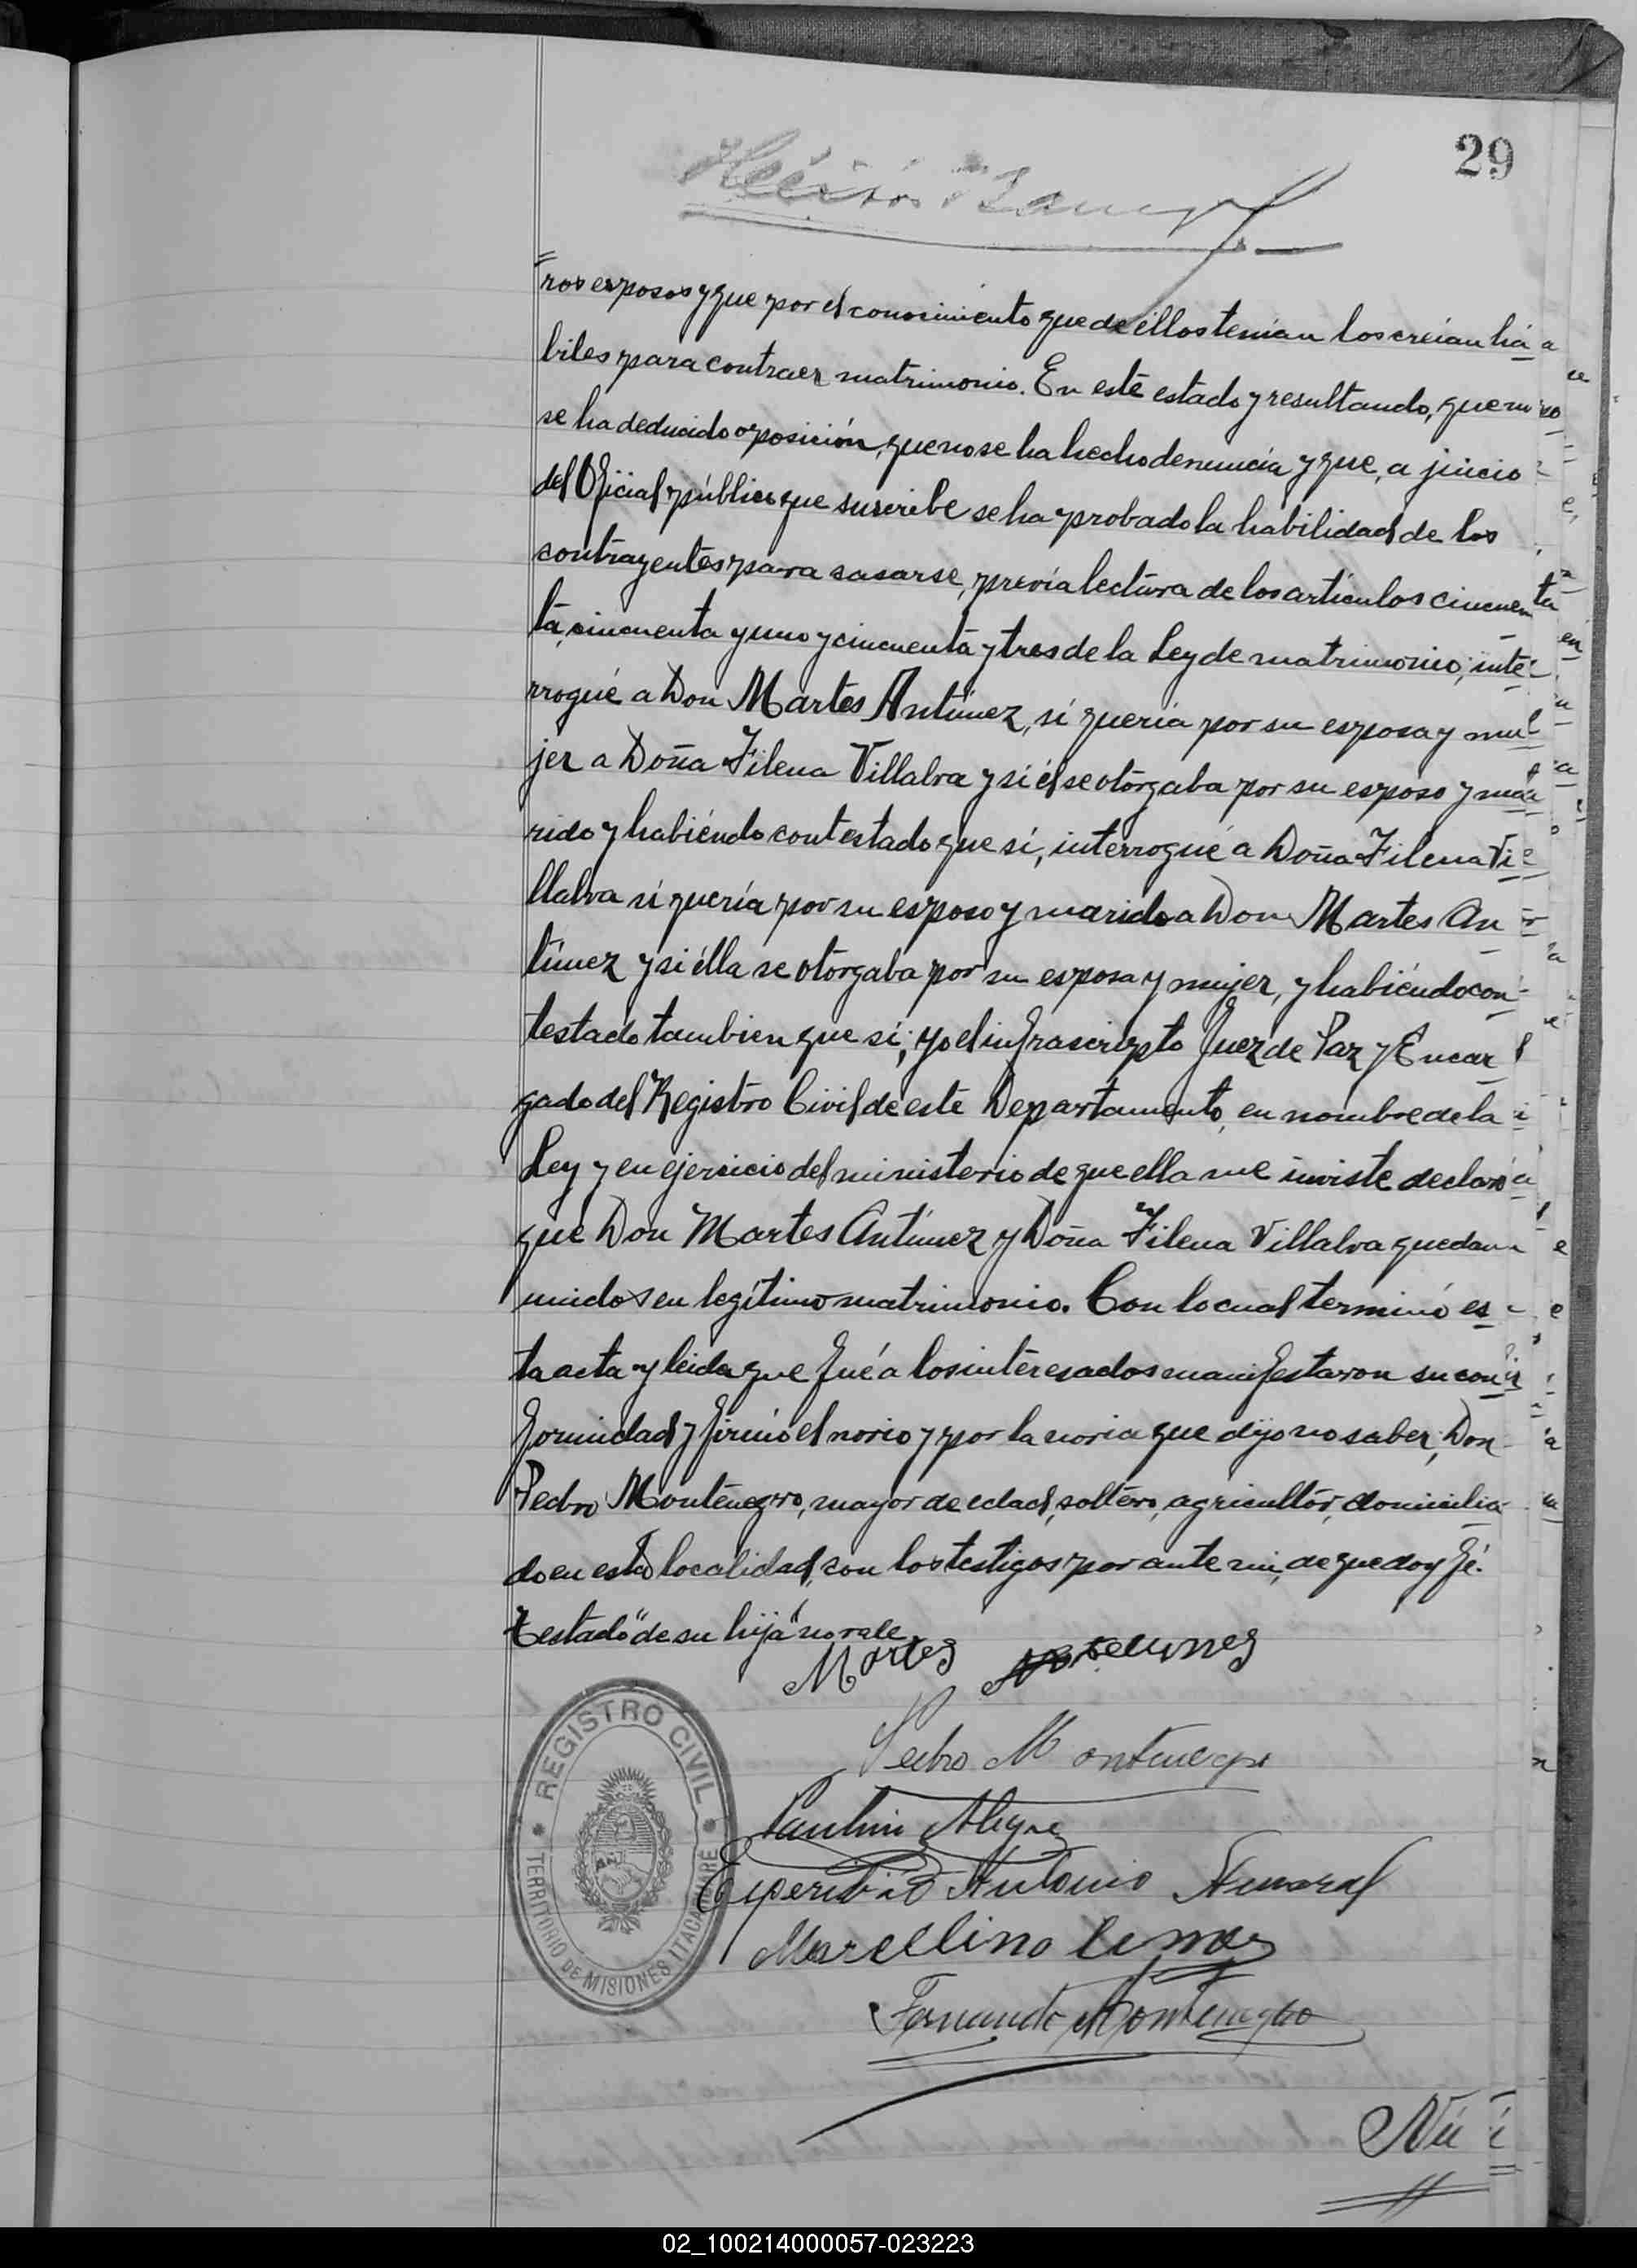 29
ros esposos y que por el conocimiento que de éllos tenían los creían há
biles para contraer matrimonio. En este estado y resultando, que no
se ha deducido oposición, que no se ha hecho denuncia y que, a juicio
del Oficial público que suscribe se ha probado la habilidad de los
contrayentes para casarse, previa lectura de los artículos cincuen
ta, cincuenta y uno y cincuenta y tres de la Ley de matrimonio, inte
rrogué a Don Martes Antúnez, si quería por su esposa y mu
jer a Doña Filena Villalva y si él se otorgaba por su esposo y ma
rido y habiéndo contestado que sí, interrogué a Doña Filena Vi
llalva si quería por su esposo y marido a Don Martes An
túnez y si élla se otorgaba por su esposa y mujer, y habiéndo con
testado tambien que sí; yo el infrascripto Juez de Paz y Encar
gado del Registro Civil de este Departamento, en nombre de la
Ley y en ejercicio del ministerio de que ella me inviste declaro
que Don Martes Antúnez y Doña Filena Villalva quedan
unidos en legítimo matrimonio. Con lo cual terminó es
ta acta y leida que fué a los interesados manifestaron su con
formidad y firmó el novio y por la novia que dijo no saber, Don
Pedro Montenegro, mayor de edad, soltero, agricultor, domicilia
do en esta localidad, con los testigos por ante mi, de que doy fé.
Testado "de su hija" no vale.
Martes
Pedro Montenegro
Paulino Alegre
Antonio Amaral
Marcellino
Fernando Montenegro
REGISTRO CIVIL
TERRITORIO DE MISIONES ITACARUARÉ
Nú
02_100214000057-023223